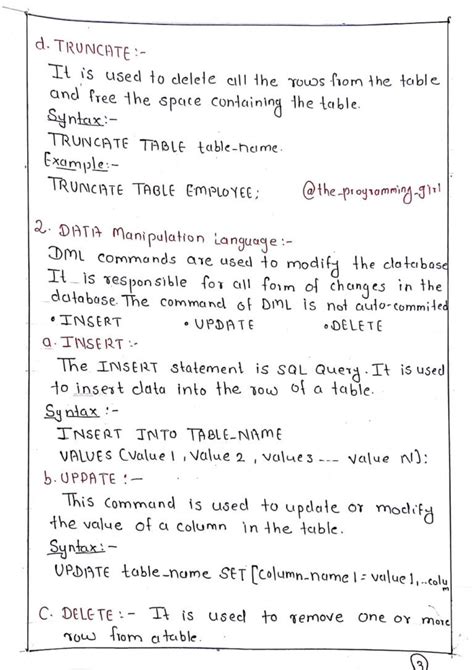 d. TRUNCATE :-
It is used to delete all the rows from the table
and free the space containing the table.
Syntax:-
TRUNCATE TABLE table-name.
Example:-
TRUNCATE TABLE EMPLOYEE;    @the_programming_girl
2. DATA Manipulation Language:-
DML commands are used to modify the database
It is responsible for all form of changes in the
database. The command of DML is not auto-commited
• INSERT    • UPDATE    • DELETE
a. INSERT :-
The INSERT statement is SQL Query. It is used
to insert data into the row of a table.
Syntax :-
INSERT INTO TABLE_NAME
VALUES (value 1, value 2, value 3 --- value N):
b. UPDATE :-
This command is used to update or modify
the value of a column in the table.
Syntax:-
UPDATE table_name SET [column_name 1 = value 1,..colum
C. DELETE :- It is used to remove one or more
row from a table.
3